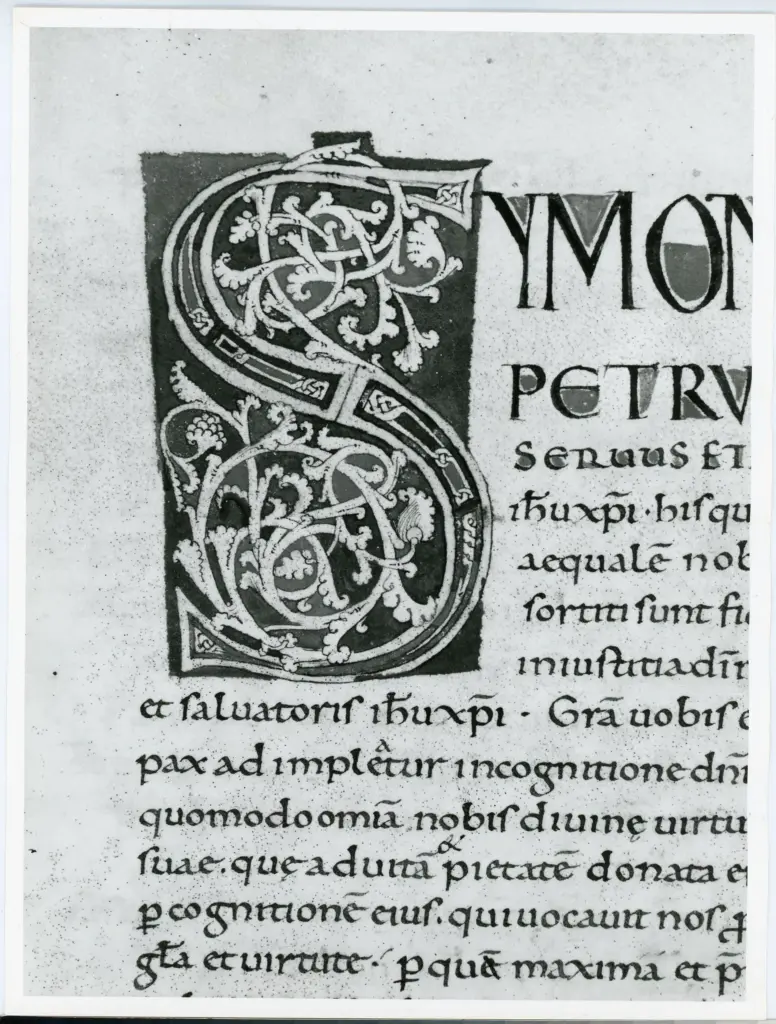 SYMON
PETRV
SERUUS ET
ih̄u xp̄i · his qu
aequalē nob
sortiti sunt fi
iniustitia dn̄i
et saluatoris ih̄u xp̄i · Grā uobis e
pax adimpletur in cognitione dn̄i
quomodo omīa nobis diuinę uirtu
suae. quę ad uitā & pietatē donata e
p̄ cognitionē eius. qui uocauit nos ꝓ
gl̄a et uirtute · p̄ quā maxima et p̄